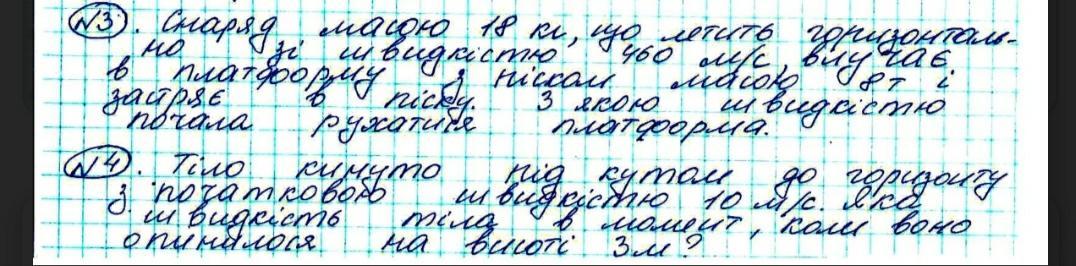 №3. Снаряд масою 18 кг, що летить горизонталь-
но зі швидкістю 460 м/с, влучає
в платформу з піском масою 8т і
застряє в піску. З якою швидкістю
почала рухатися платформа.
№4. Тіло кинуто під кутом до горизонту
з початковою швидкістю 10 м/с. Яка
швидкість тіла в момент, коли воно
опинилося на висоті 3м?